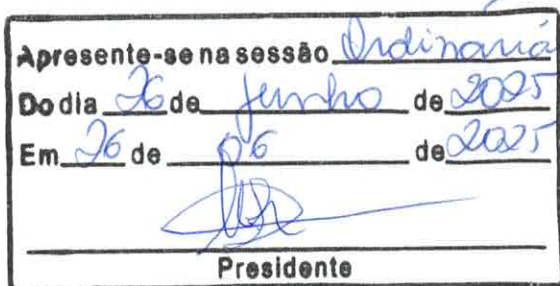 Apresente-se na sessão Ordinária
Do dia 26 de junho de 2025
Em 26 de 06 de 2025
Presidente